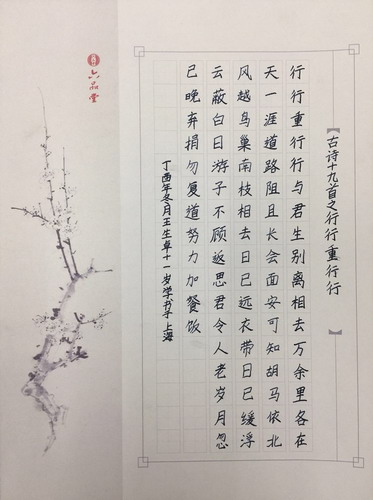 【古诗十九首之行行重行行】
行行重行行与君生别离相去万余里各在
天一涯道路阻且长会面安可知胡马依北
风越鸟巢南枝相去日已远衣带日已缓浮
云蔽白日游子不顾返思君令人老岁月忽
已晚弃捐勿复道努力加餐饭
丁酉年冬月王生十一岁学书于上海
六品堂